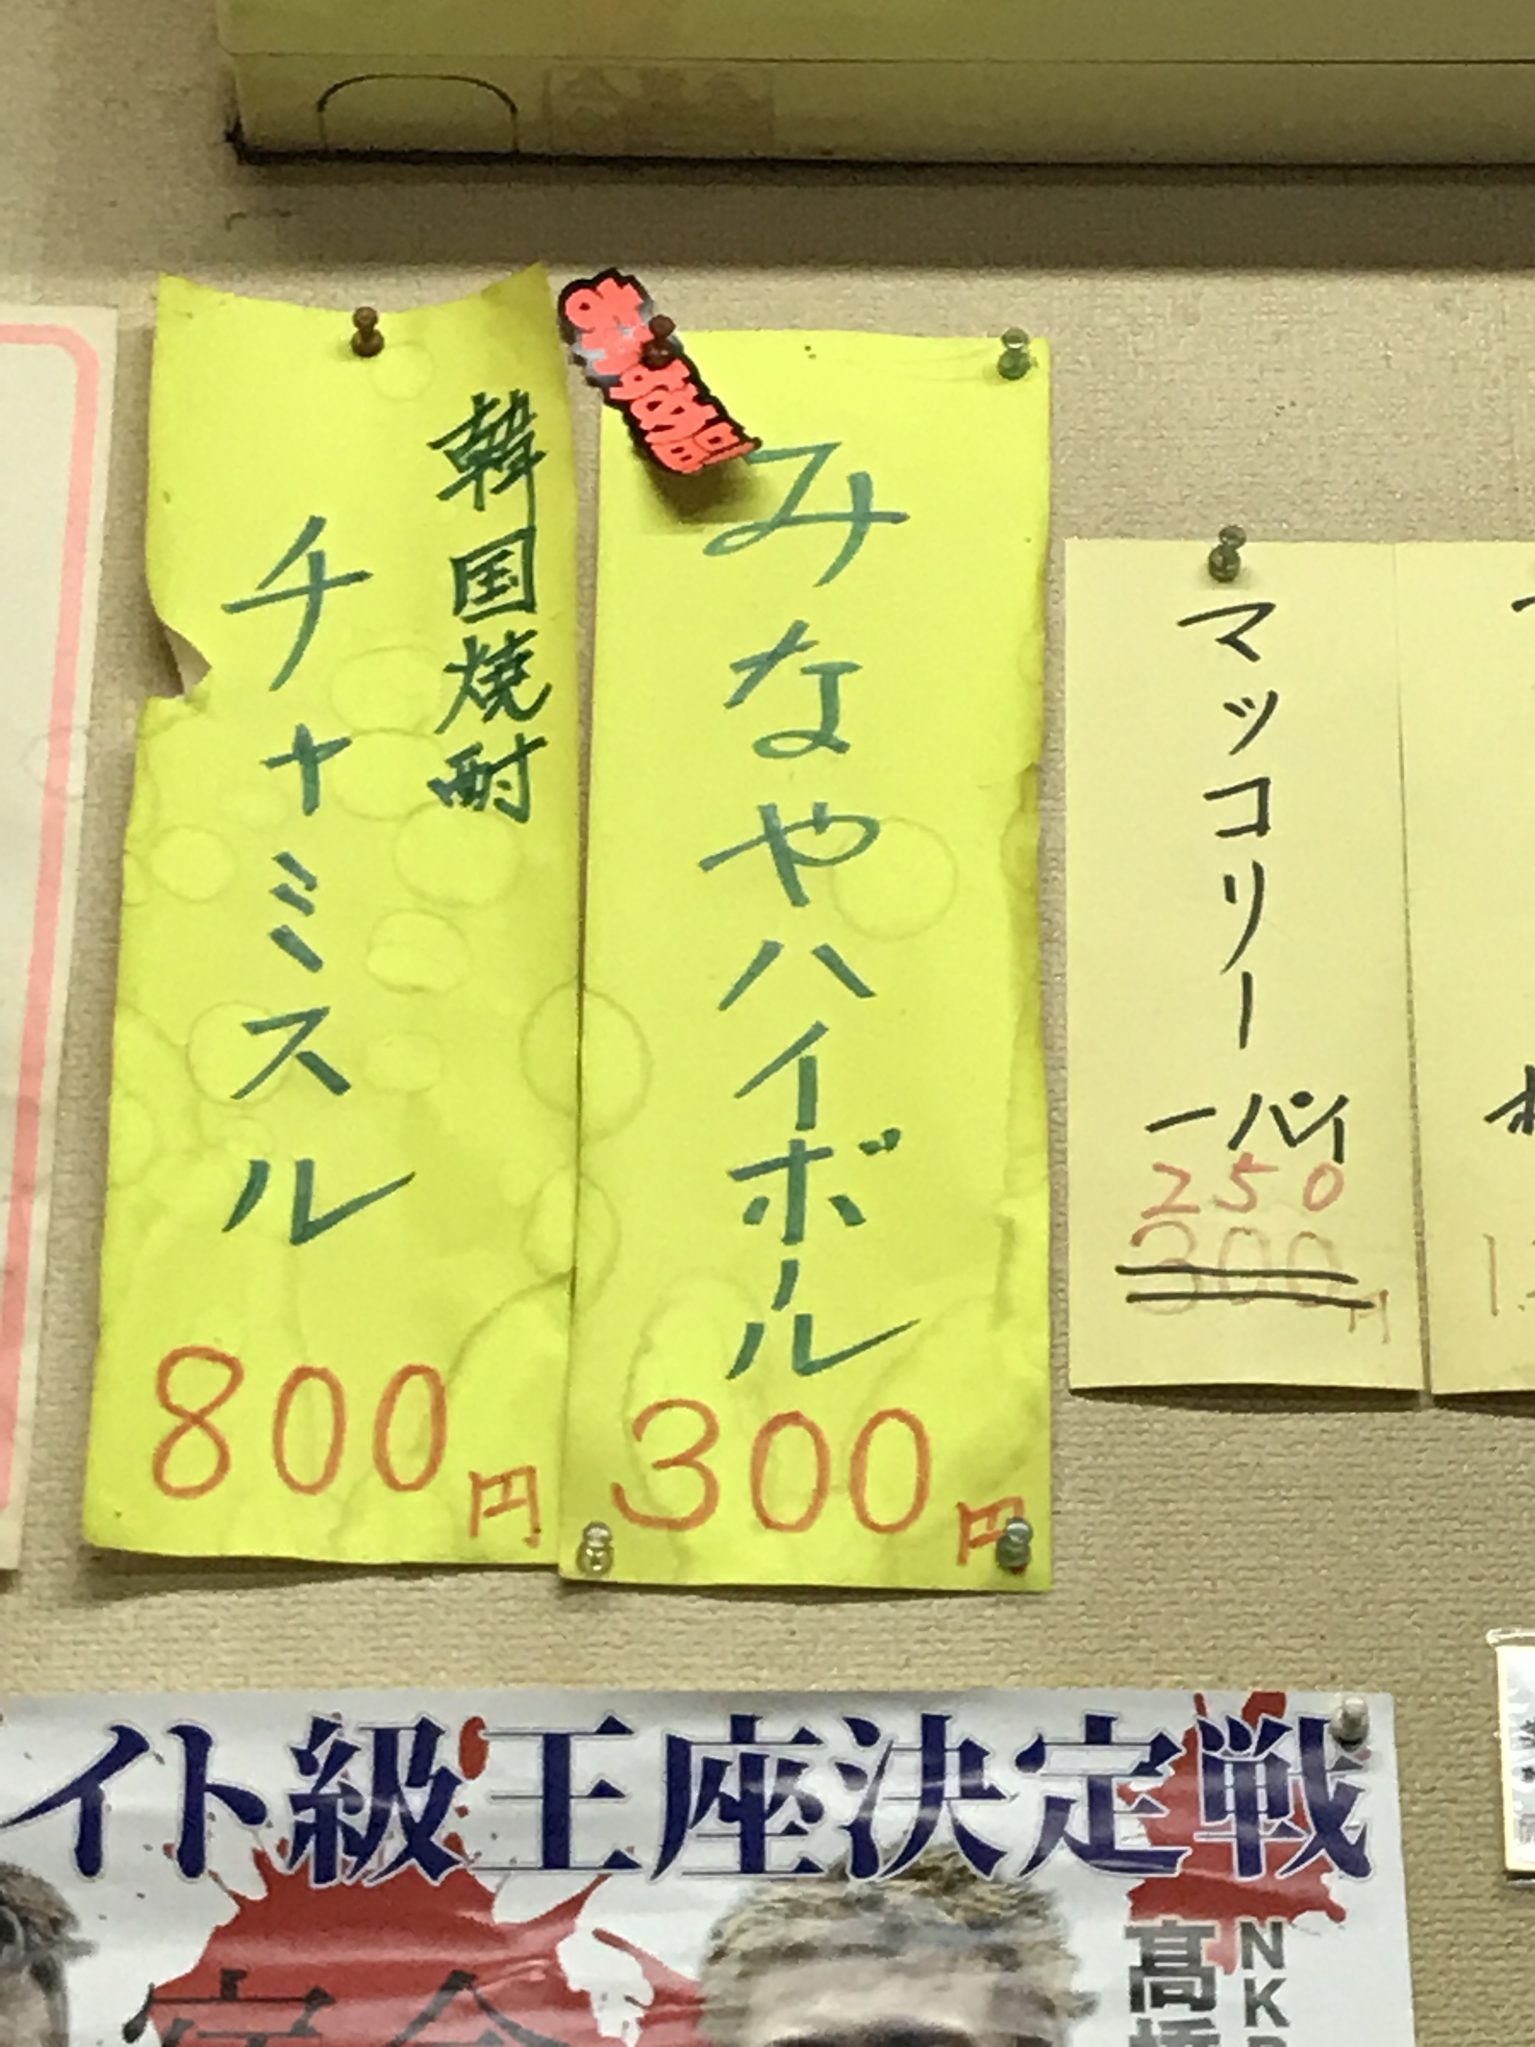 韓国焼酎
チャミスル
800円
おすすめ
みなやハイボール
300円
マッコリー
一パイ
250
300円
イト級王座決定戦
NK
髙橋